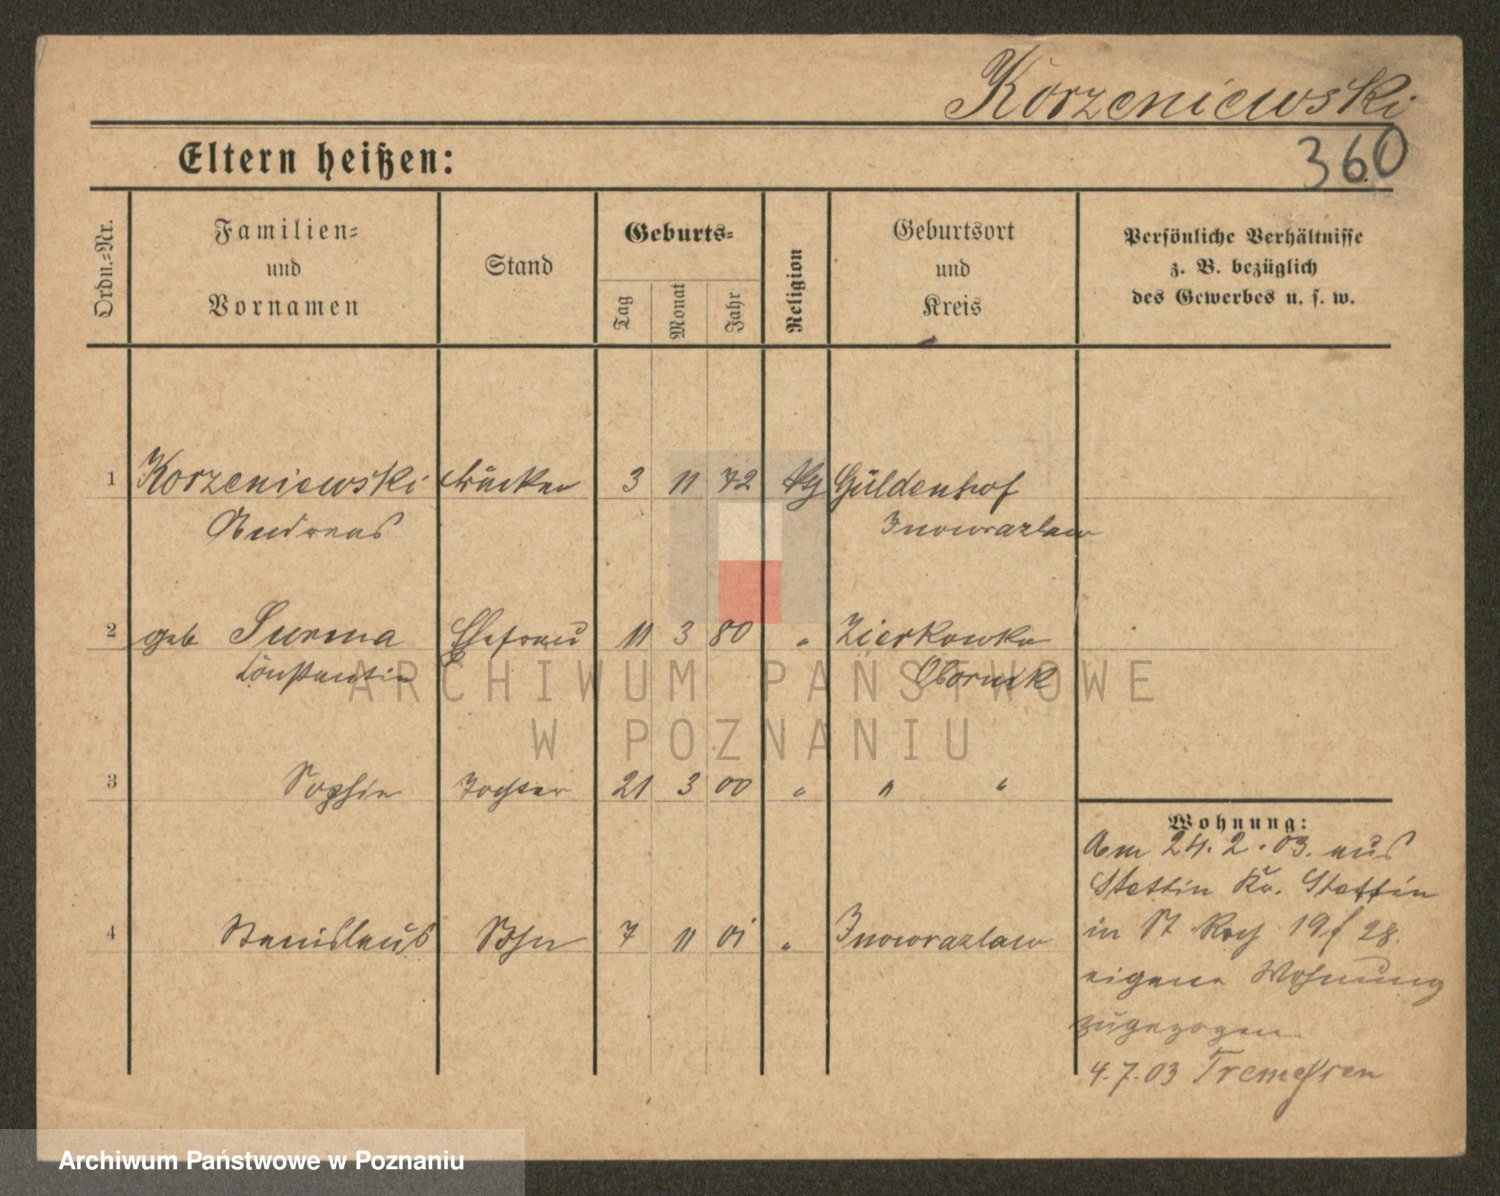 Korzeniewski
360
Eltern heißen:
Ordn.=Nr.
Familien=
und
Vornamen
Stand
Geburts=
Tag
Monat
Jahr
Religion
Geburtsort
und
Kreis
Persönliche Verhältnisse
z. B. bezüglich
des Gewerbes u. s. w.
1 Korzeniewski 3 11 72 Güldenhof
Andreas Inowrazlaw
2 geb Surma Ehefrau 11 3 80 " Zierkowko
Constantin Obornik
3 Sophie Tochter 21 3 00 " " "
4 Stanislaus Sohn 7 11 01 " Inowrazlaw
Wohnung:
Am 24.2.03. aus
Stettin Kr. Stettin
in St Roch 19/28.
eigene Wohnung
zugezogen
4.7.03 Tremessen
ARCHIWUM PAŃSTWOWE
W POZNANIU
Archiwum Państwowe w Poznaniu